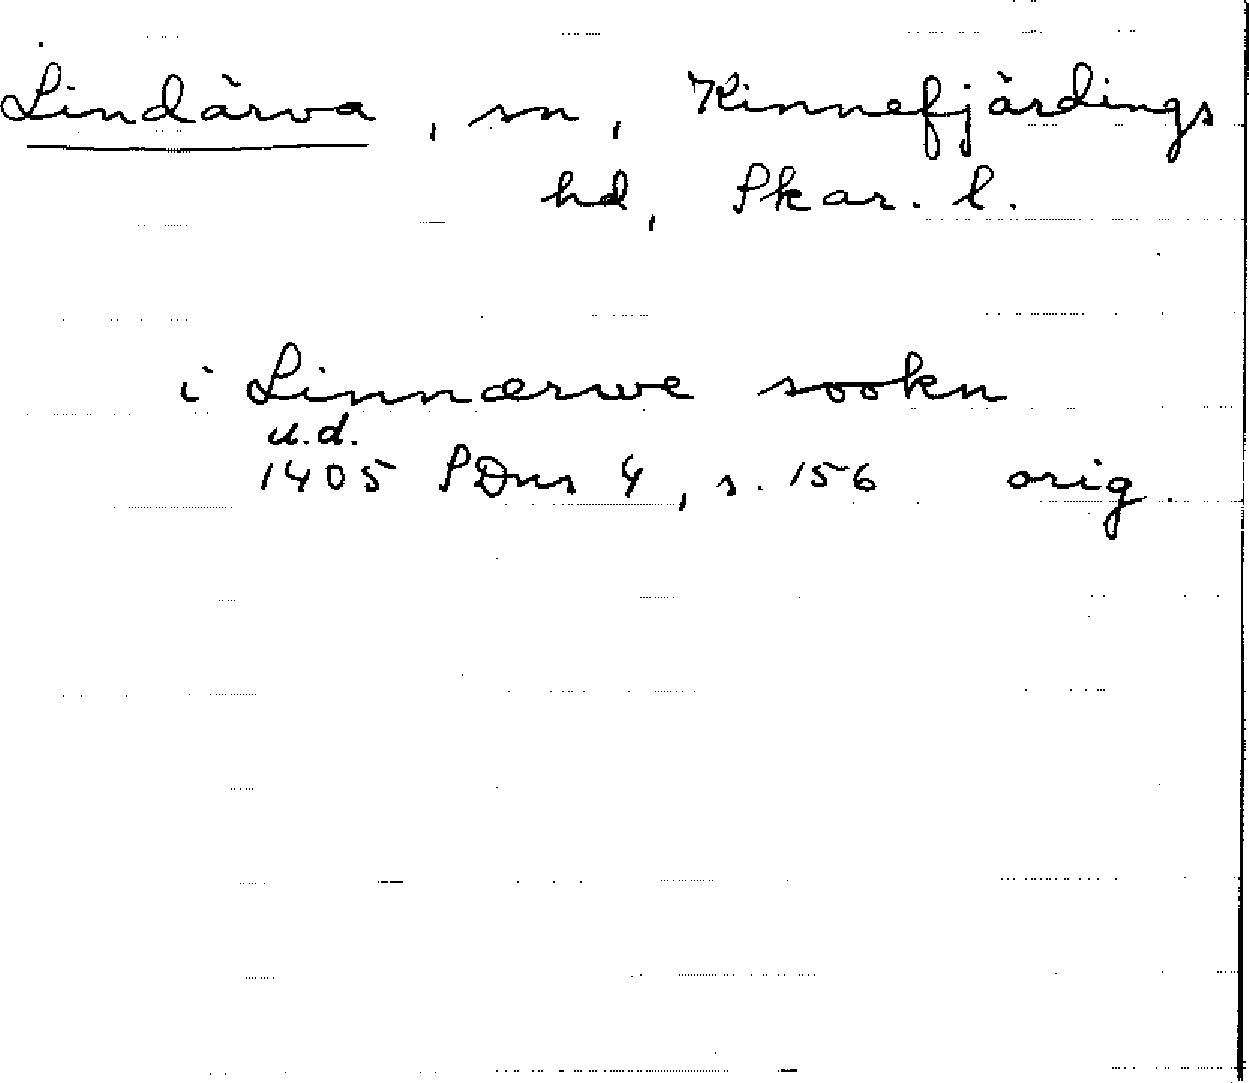 Lindärva, sn, Kinnefjärdings
hd, Skar. l.
i Linnærwe sookn
u.d.
1405 SDns 4, s. 156 orig.